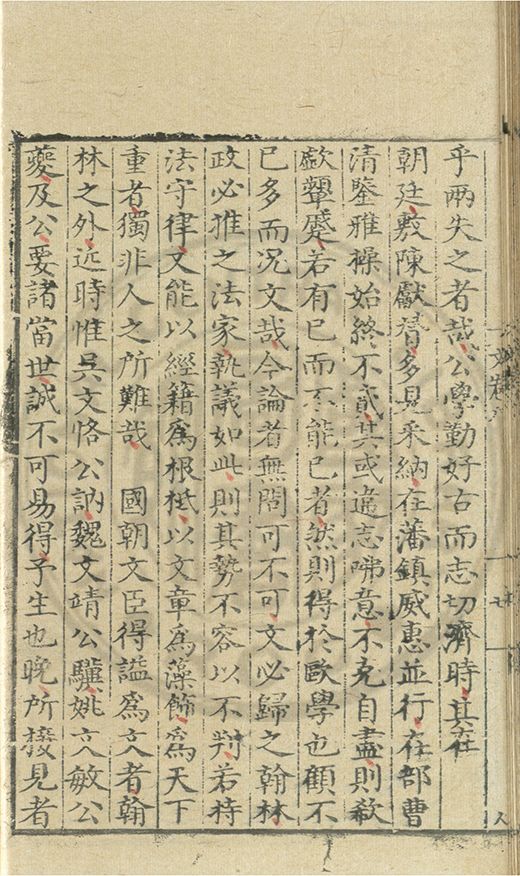 乎兩失之者哉公學勤好古而志切濟時其在
朝廷敷陳獻替多見采納在藩鎮威惠並行在部曹
清鑒雅操始終不貳其或違志咈意不克自盡則欷
歔顰蹙若有已而不能已者然則得於歐學也顧不
已多而况文哉今論者無問可不可文必歸之翰林
政必推之法家執議如此則其勢不容以不判若持
法守律又能以經籍爲根柢以文章為藻飾為天下
重者獨非人之所難哉 國朝文臣得謚爲文者翰
林之外近時惟吳文恪公訥魏文靖公驥姚文敏公
夔及公要諸當世誠不可易得予生也晚所接見者